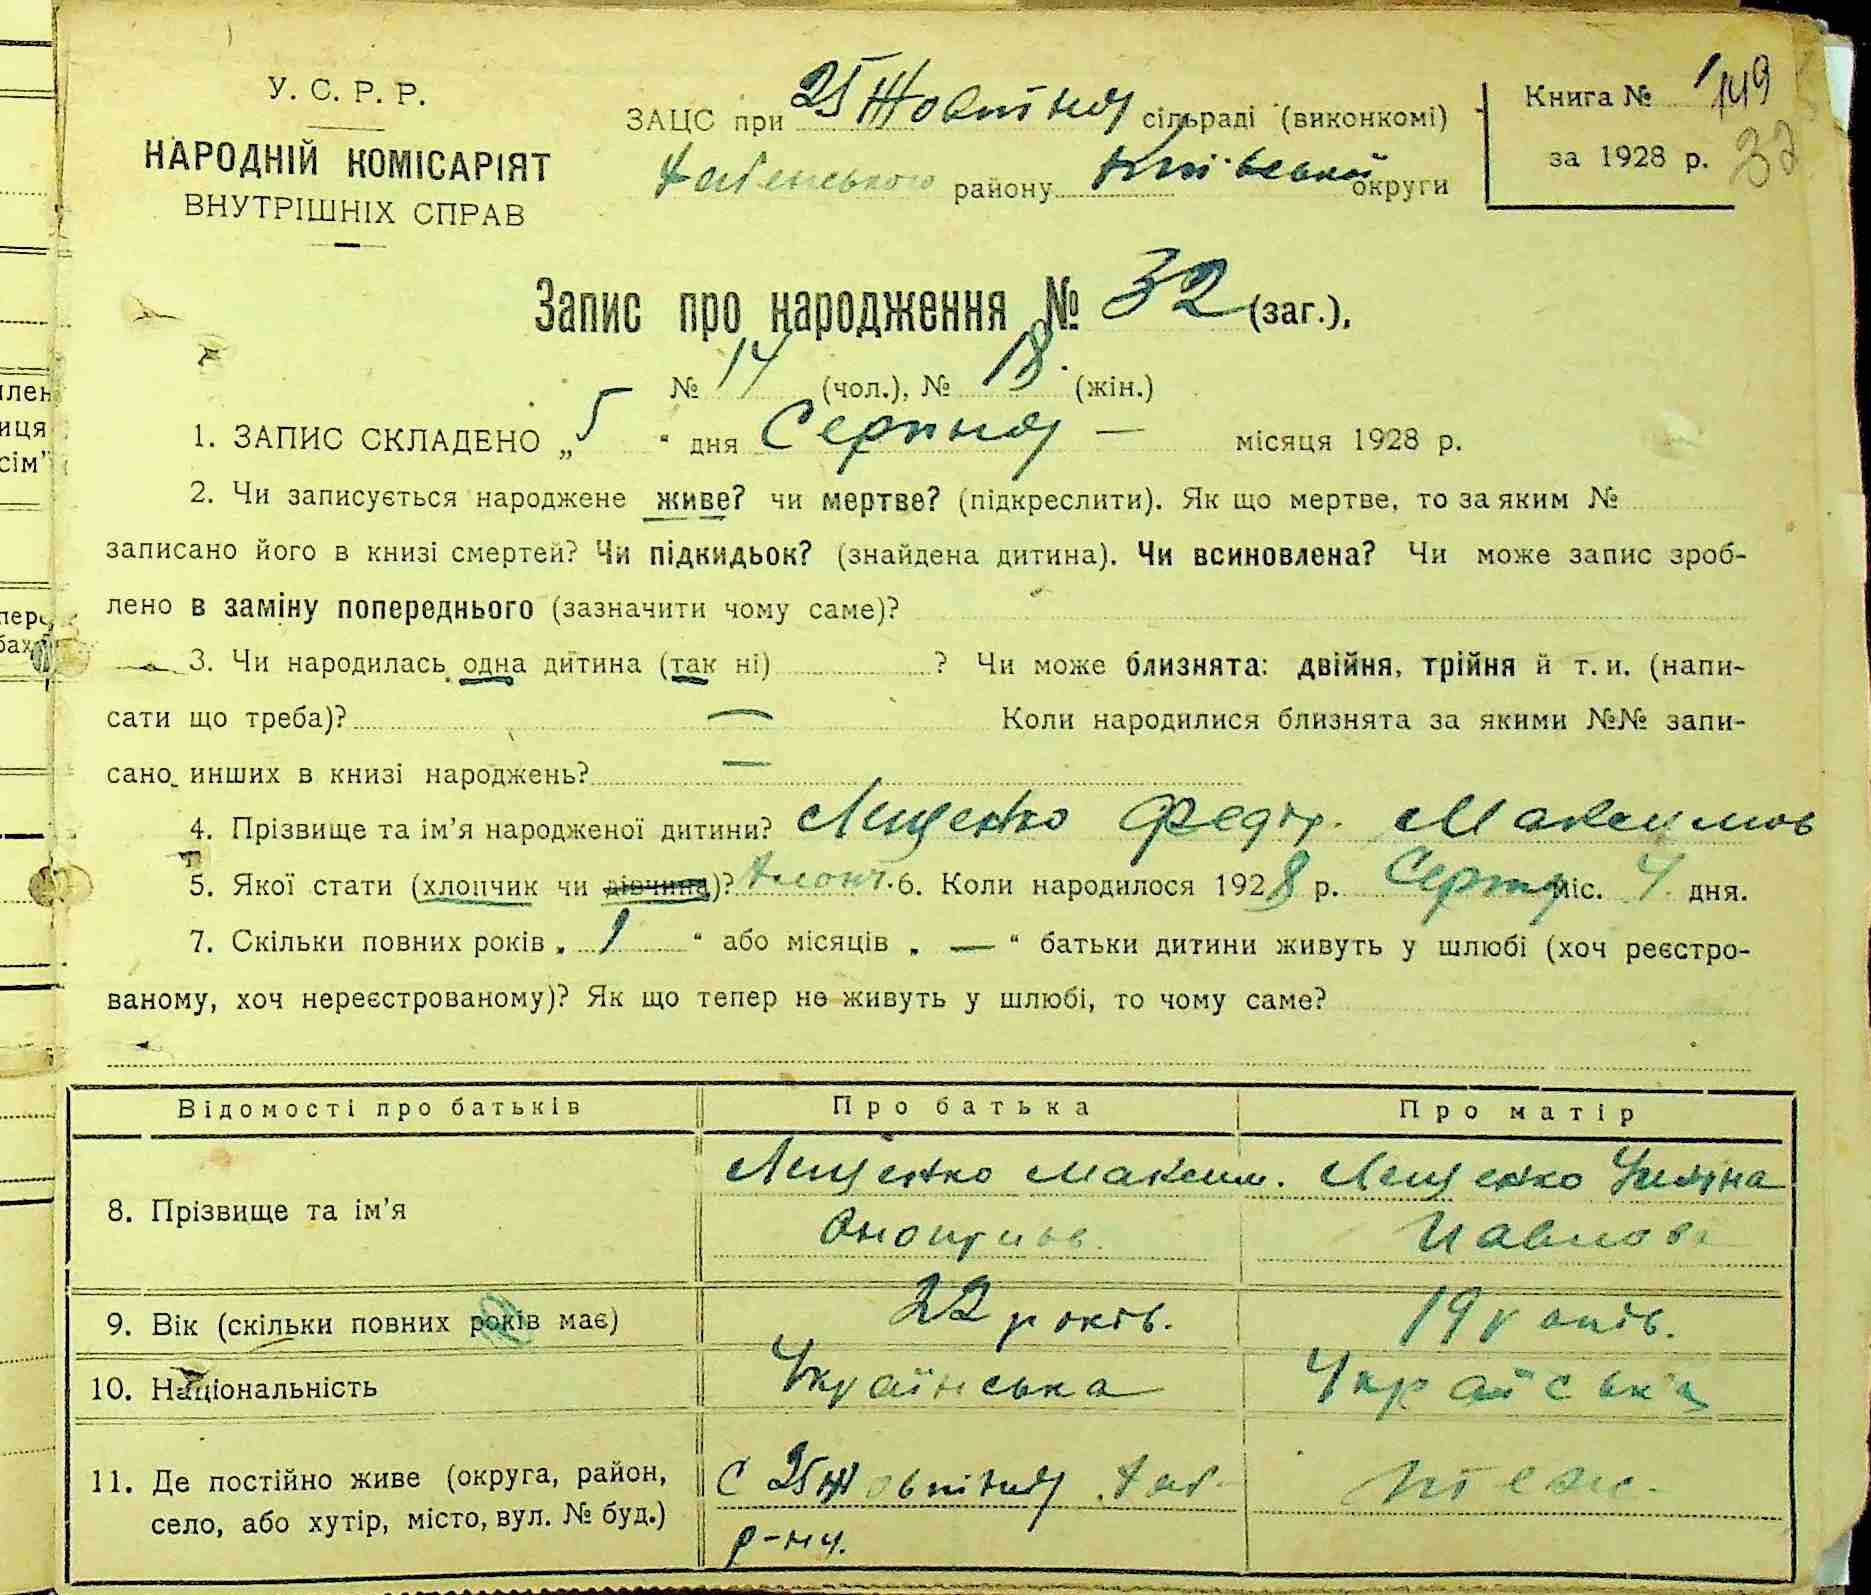 У. С. Р. Р.
НАРОДНІЙ КОМІСАРІЯТ
ВНУТРІШНІХ СПРАВ
ЗАЦС при 25 Жовтня сільраді (виконкомі)
району Київської округи
Книга № 1 149
за 1928 р. 32
Запис про народження № 32 (заг.),
№ 14 (чол.), № 18. (жін.)
1. ЗАПИС СКЛАДЕНО „ 5 “ дня Серпня — місяця 1928 р.
2. Чи записується народжене живе? чи мертве? (підкреслити). Як що мертве, то за яким №
записано його в книзі смертей? Чи підкидьок? (знайдена дитина). Чи всиновлена? Чи може запис зроб-
лено в заміну попереднього (зазначити чому саме)?
3. Чи народилась одна дитина (так ні) ? Чи може близнята: двійня, трійня й т. и. (напи-
сати що треба)? — Коли народилися близнята за якими №№ запи-
сано инших в книзі народжень? —
4. Прізвище та ім'я народженої дитини? Лещенко Федір. Максимов
5. Якої статі (хлопчик чи дівчина)? хлопч. 6. Коли народилося 1928 р. Серпня міс. 4 дня.
7. Скільки повних років „ 1 “ або місяців „ — “ батьки дитини живуть у шлюбі (хоч реєстро-
ваному, хоч нереєстрованому)? Як що тепер не живуть у шлюбі, то чому саме?
Відомості про батьків
Про батька
Про матір
8. Прізвище та ім'я
Лещенко Максим.
Оноприєв.
Лещенко Уляна
Павлов
9. Вік (скільки повних років має)
22 років.
19 років.
10. Національність
Українська
Україська
11. Де постійно живе (округа, район,
село, або хутір, місто, вул. № буд.)
С 25 Жовтня
р-ну.
теж.